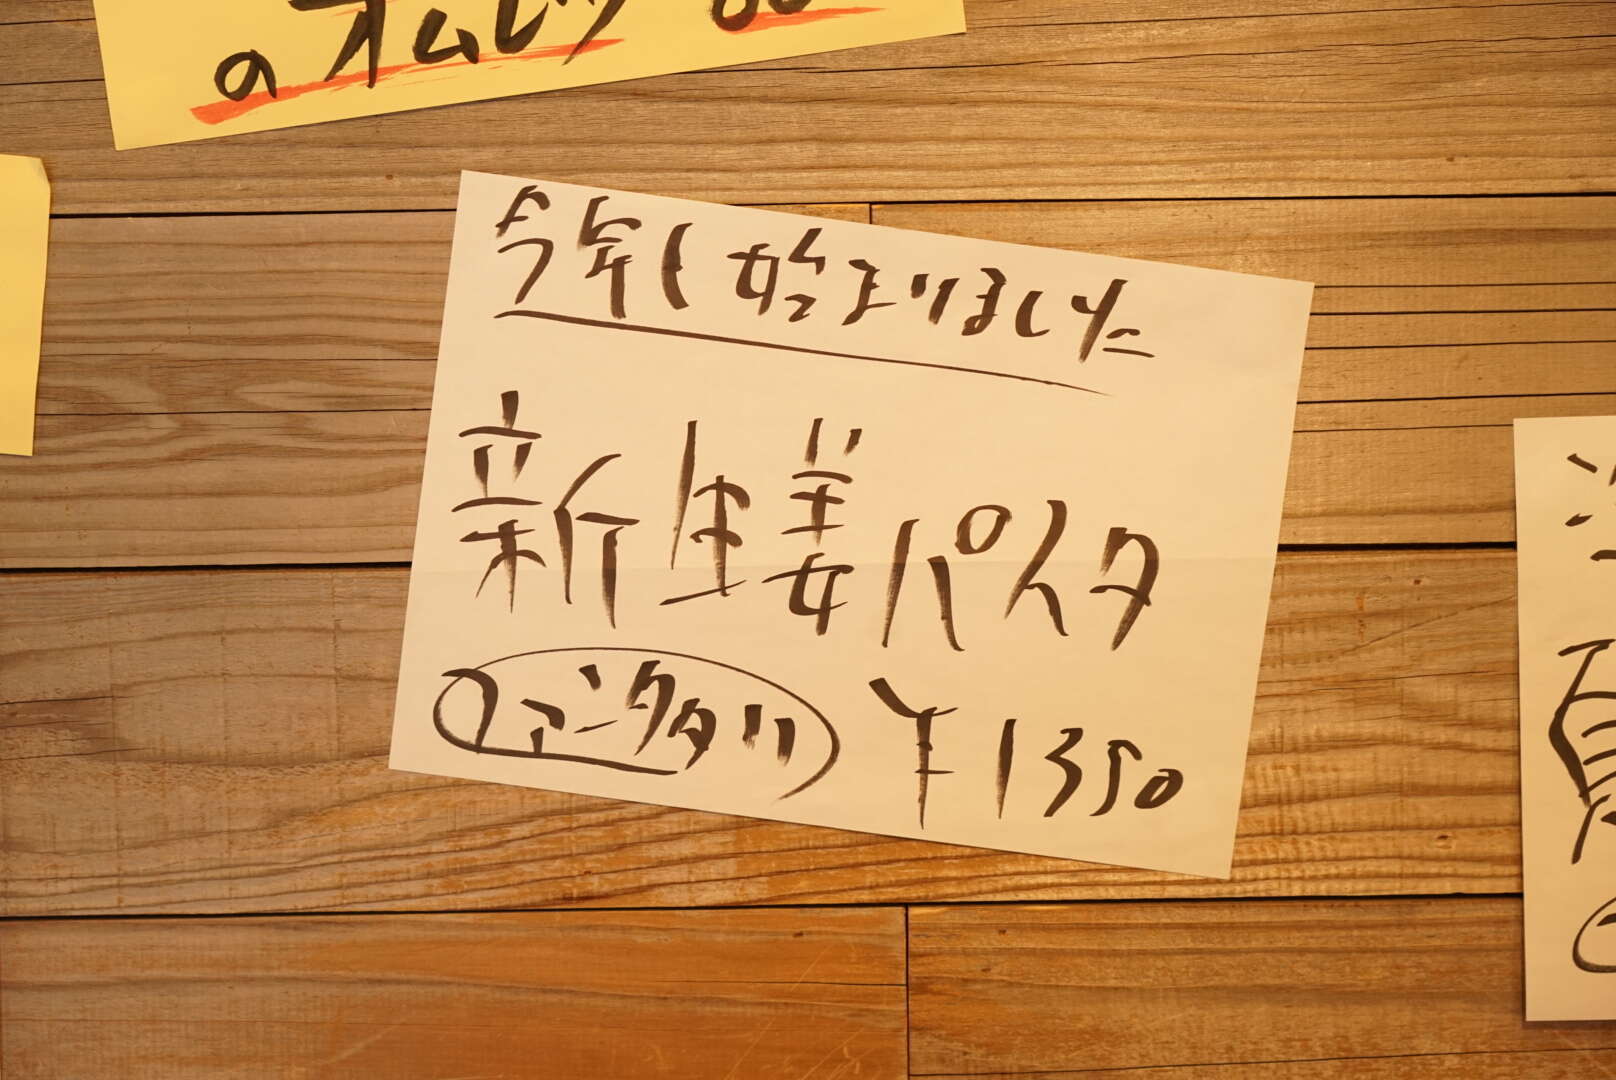 のオムレツ
今年も始まりました
新生姜パスタ
ファン多い ¥1350